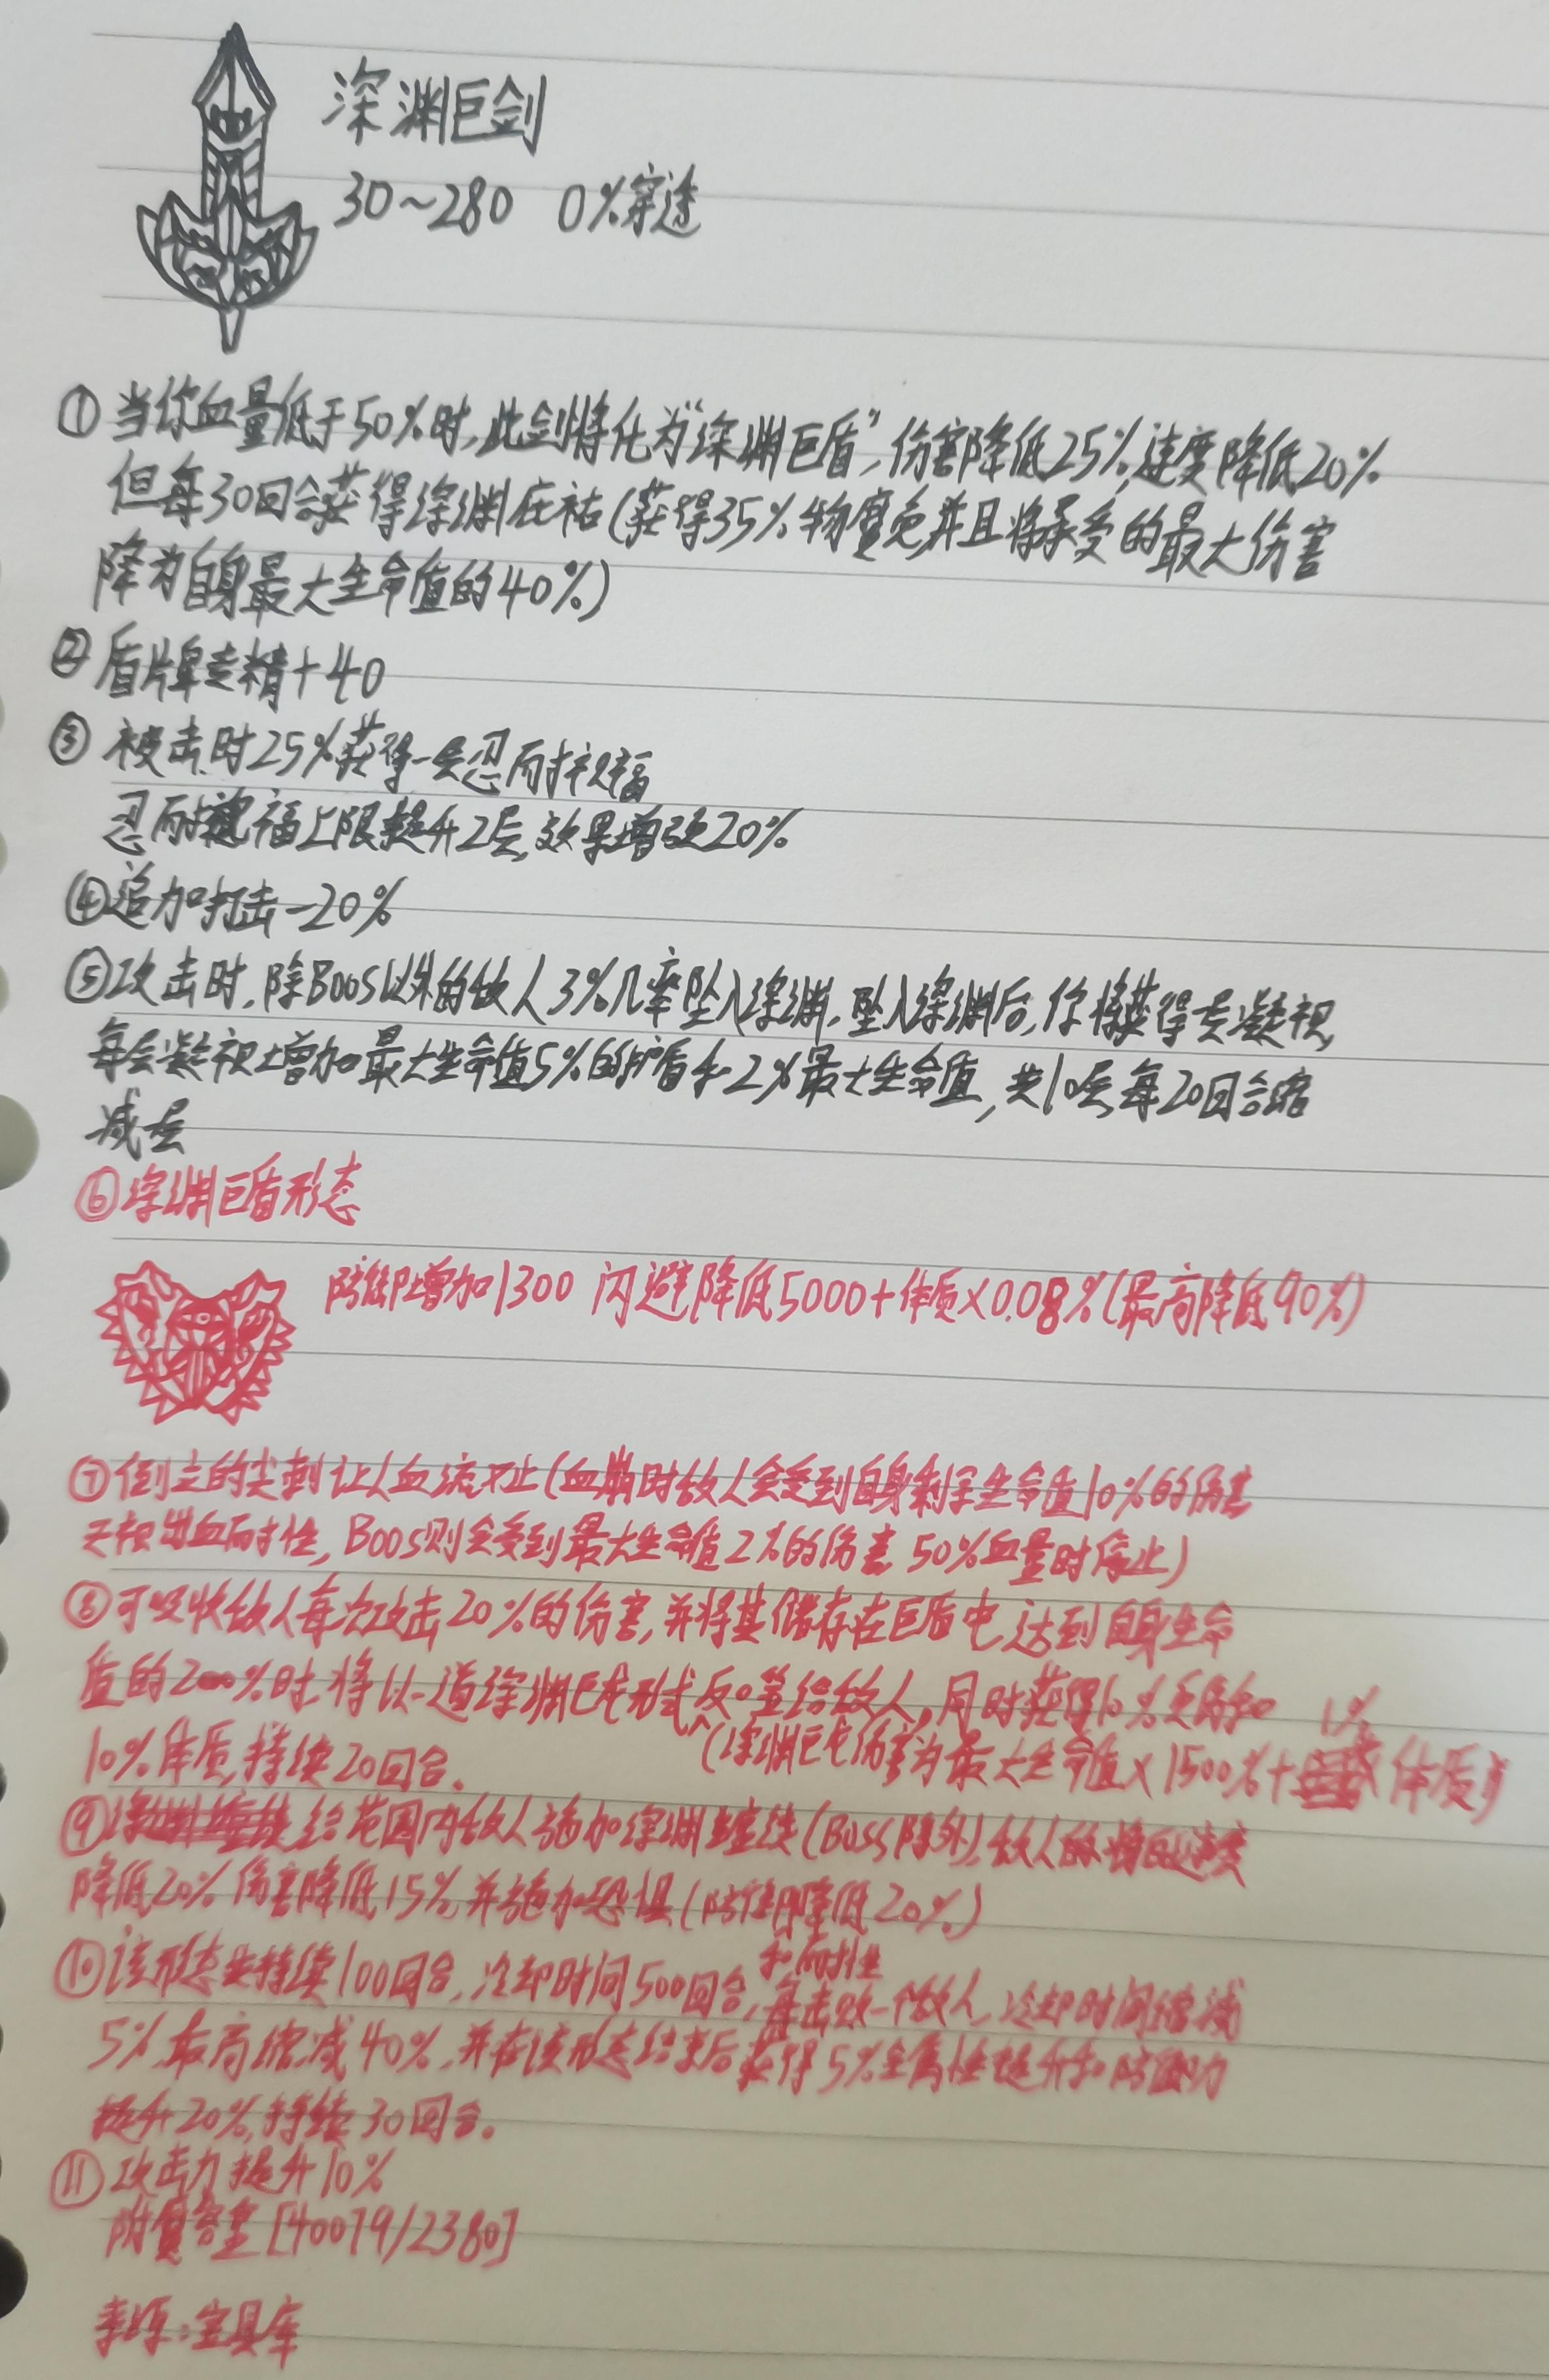 深渊巨剑
30~280 0%穿透
①当你血量低于50%时,此剑将化为“深渊巨盾”,伤害降低25%,速度降低20%
但每30回合获得深渊庇祐(获得35%物魔免,并且将承受的最大伤害
降为自身最大生命值的40%)
②盾牌专精+40
③被击时25%获得一层忍耐祝福
忍耐祝福上限提升2层,效果增强20%
④追加打击-20%
⑤攻击时,除Boos以外的敌人3%几率坠入深渊,坠入深渊后,你将获得一层凝视,
每层凝视增加最大生命值5%的护盾和2%最大生命值,共10层,每20回合缩
减一层
⑥深渊巨盾形态
防御增加1300 闪避降低5000+体质×0.08%(最高降低90%)
⑦倒立的尖刺让人血流不止(血崩时敌人会受到自身剩余生命值10%的伤害
无视出血耐性,Boos则会受到最大生命值2%的伤害 50%血量时停止)
⑧可吸收敌人每次攻击20%的伤害,并将其储存在巨盾中,达到自身生命
值的200%时,将以一道深渊巨龙形式反噬给敌人,同时获得10%免伤和
(深渊巨龙伤害为最大生命值×1500%+1%体质)
10%体质,持续20回合.
⑨给范围内敌人施加深渊(Boss除外),敌人的速度
降低20%伤害降低15%,并施加恐惧(防御降低20%)
和耐性
⑩该形态持续100回合,冷却时间500回合,每击败一个敌人,冷却时间缩减
5%,最高缩减40%,并在该形态结束后获得5%全属性提升和防御力
提升20%,持续30回合.
⑪攻击力提升10%
附魔容量[40079/2380]
来源:宝具库